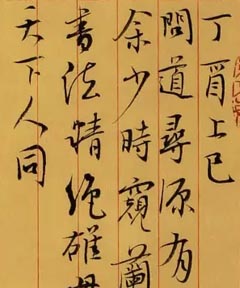 丁酉上巳
問道尋源有
余少時窺蘭
書法精絕雄
天下人同